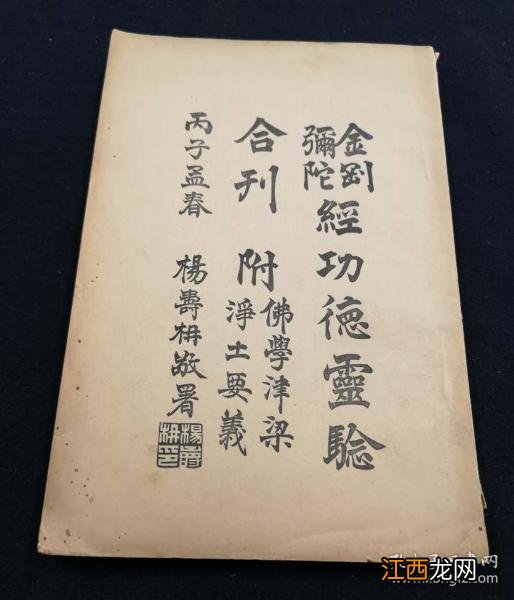 金剛
彌陀
經功德靈驗
合刊 附
佛學津梁
淨土要義
丙子孟春 楊壽枏敬署
楊壽
枏印
江西龙网